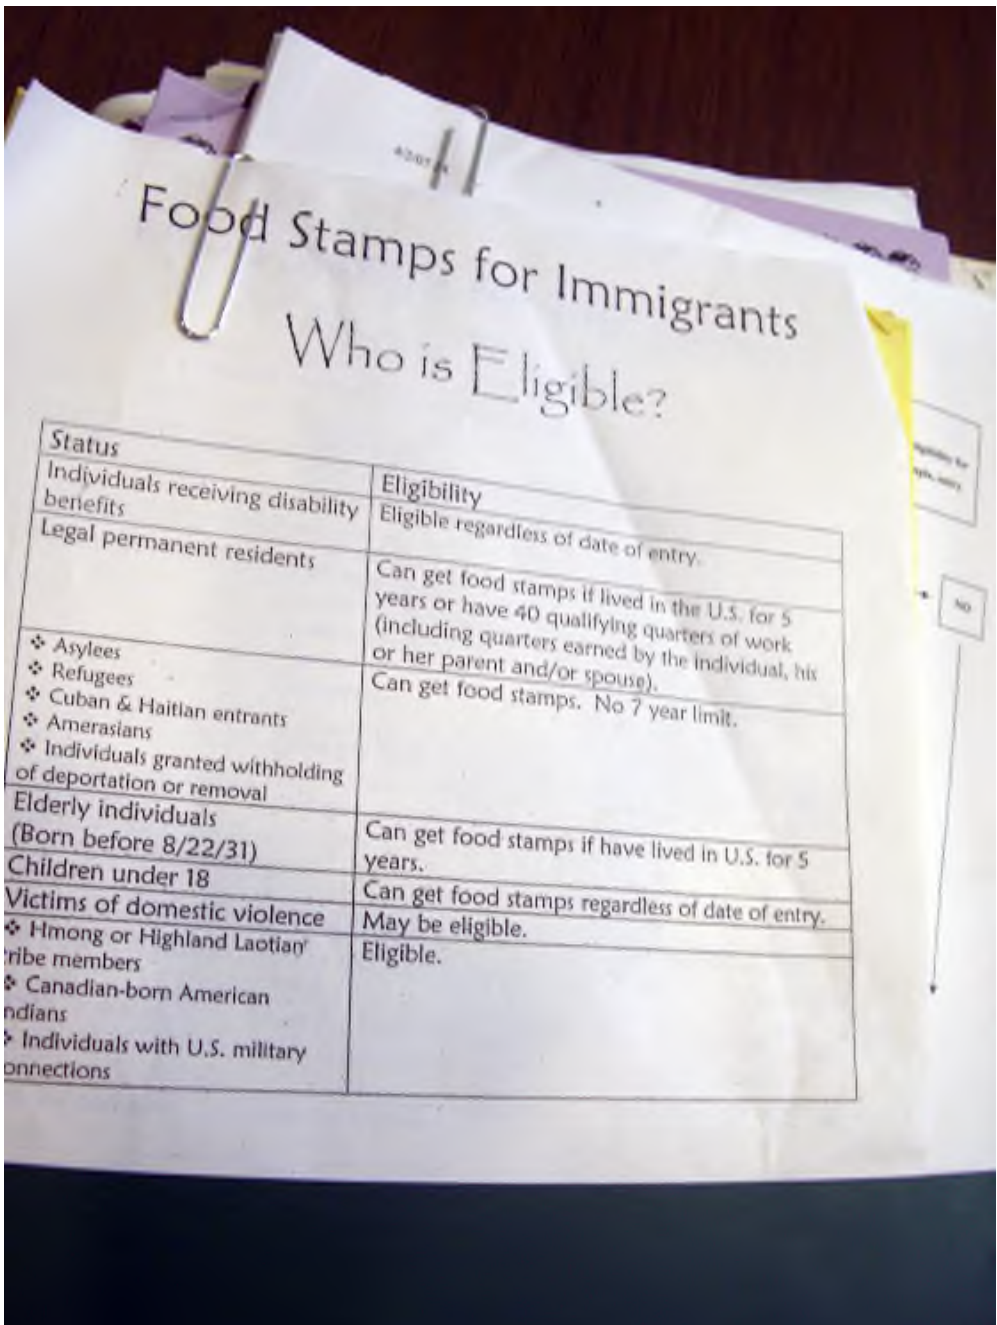 Food Stamps for Immigrants
Who is Eligible?
Status
Eligibility
Individuals receiving disability
benefits
Eligible regardless of date of entry.
Legal permanent residents
Can get food stamps if lived in the U.S. for 5
years or have 40 qualifying quarters of work
(including quarters earned by the individual, his
or her parent and/or spouse).
❖ Asylees
❖ Refugees
❖ Cuban & Haitian entrants
❖ Amerasians
❖ Individuals granted withholding
of deportation or removal
Can get food stamps. No 7 year limit.
Elderly individuals
(Born before 8/22/31)
Can get food stamps if have lived in U.S. for 5
years.
Children under 18
Can get food stamps regardless of date of entry.
Victims of domestic violence
May be eligible.
❖ Hmong or Highland Laotian
ribe members
❖ Canadian-born American
ndians
❖ Individuals with U.S. military
onnections
Eligible.
NO